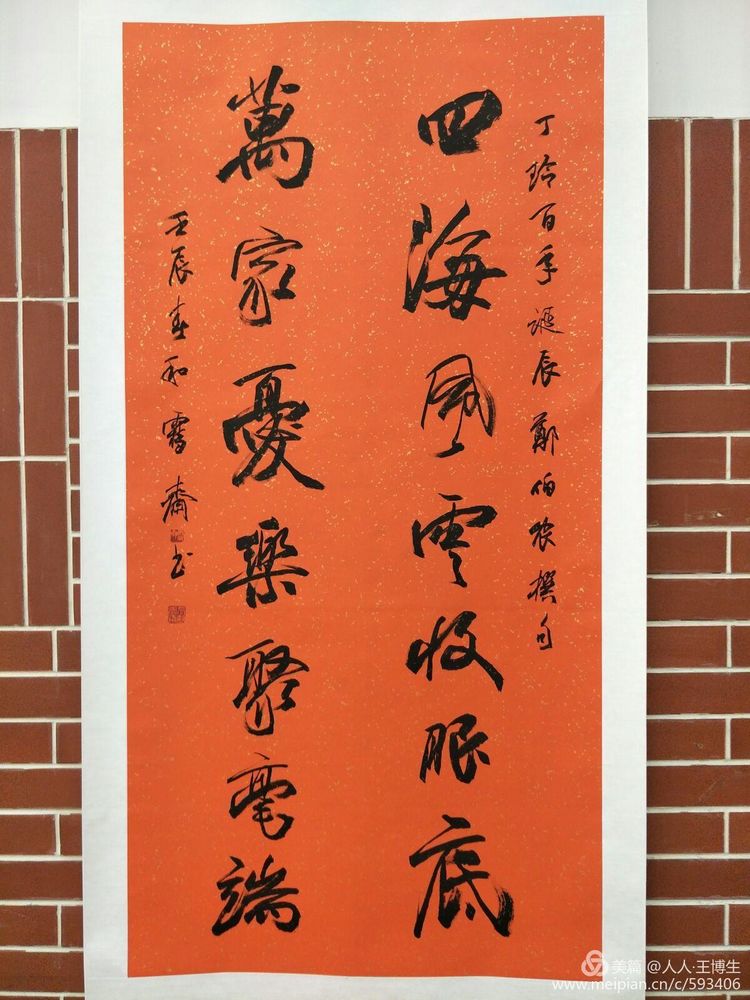 丁玲百年诞辰鄭伯农撰句
四海風雲收眼底
萬家憂樂聚毫端
壬辰春和雪齋书
美篇 @人人·王博生
www.meipian.cn/c/593406